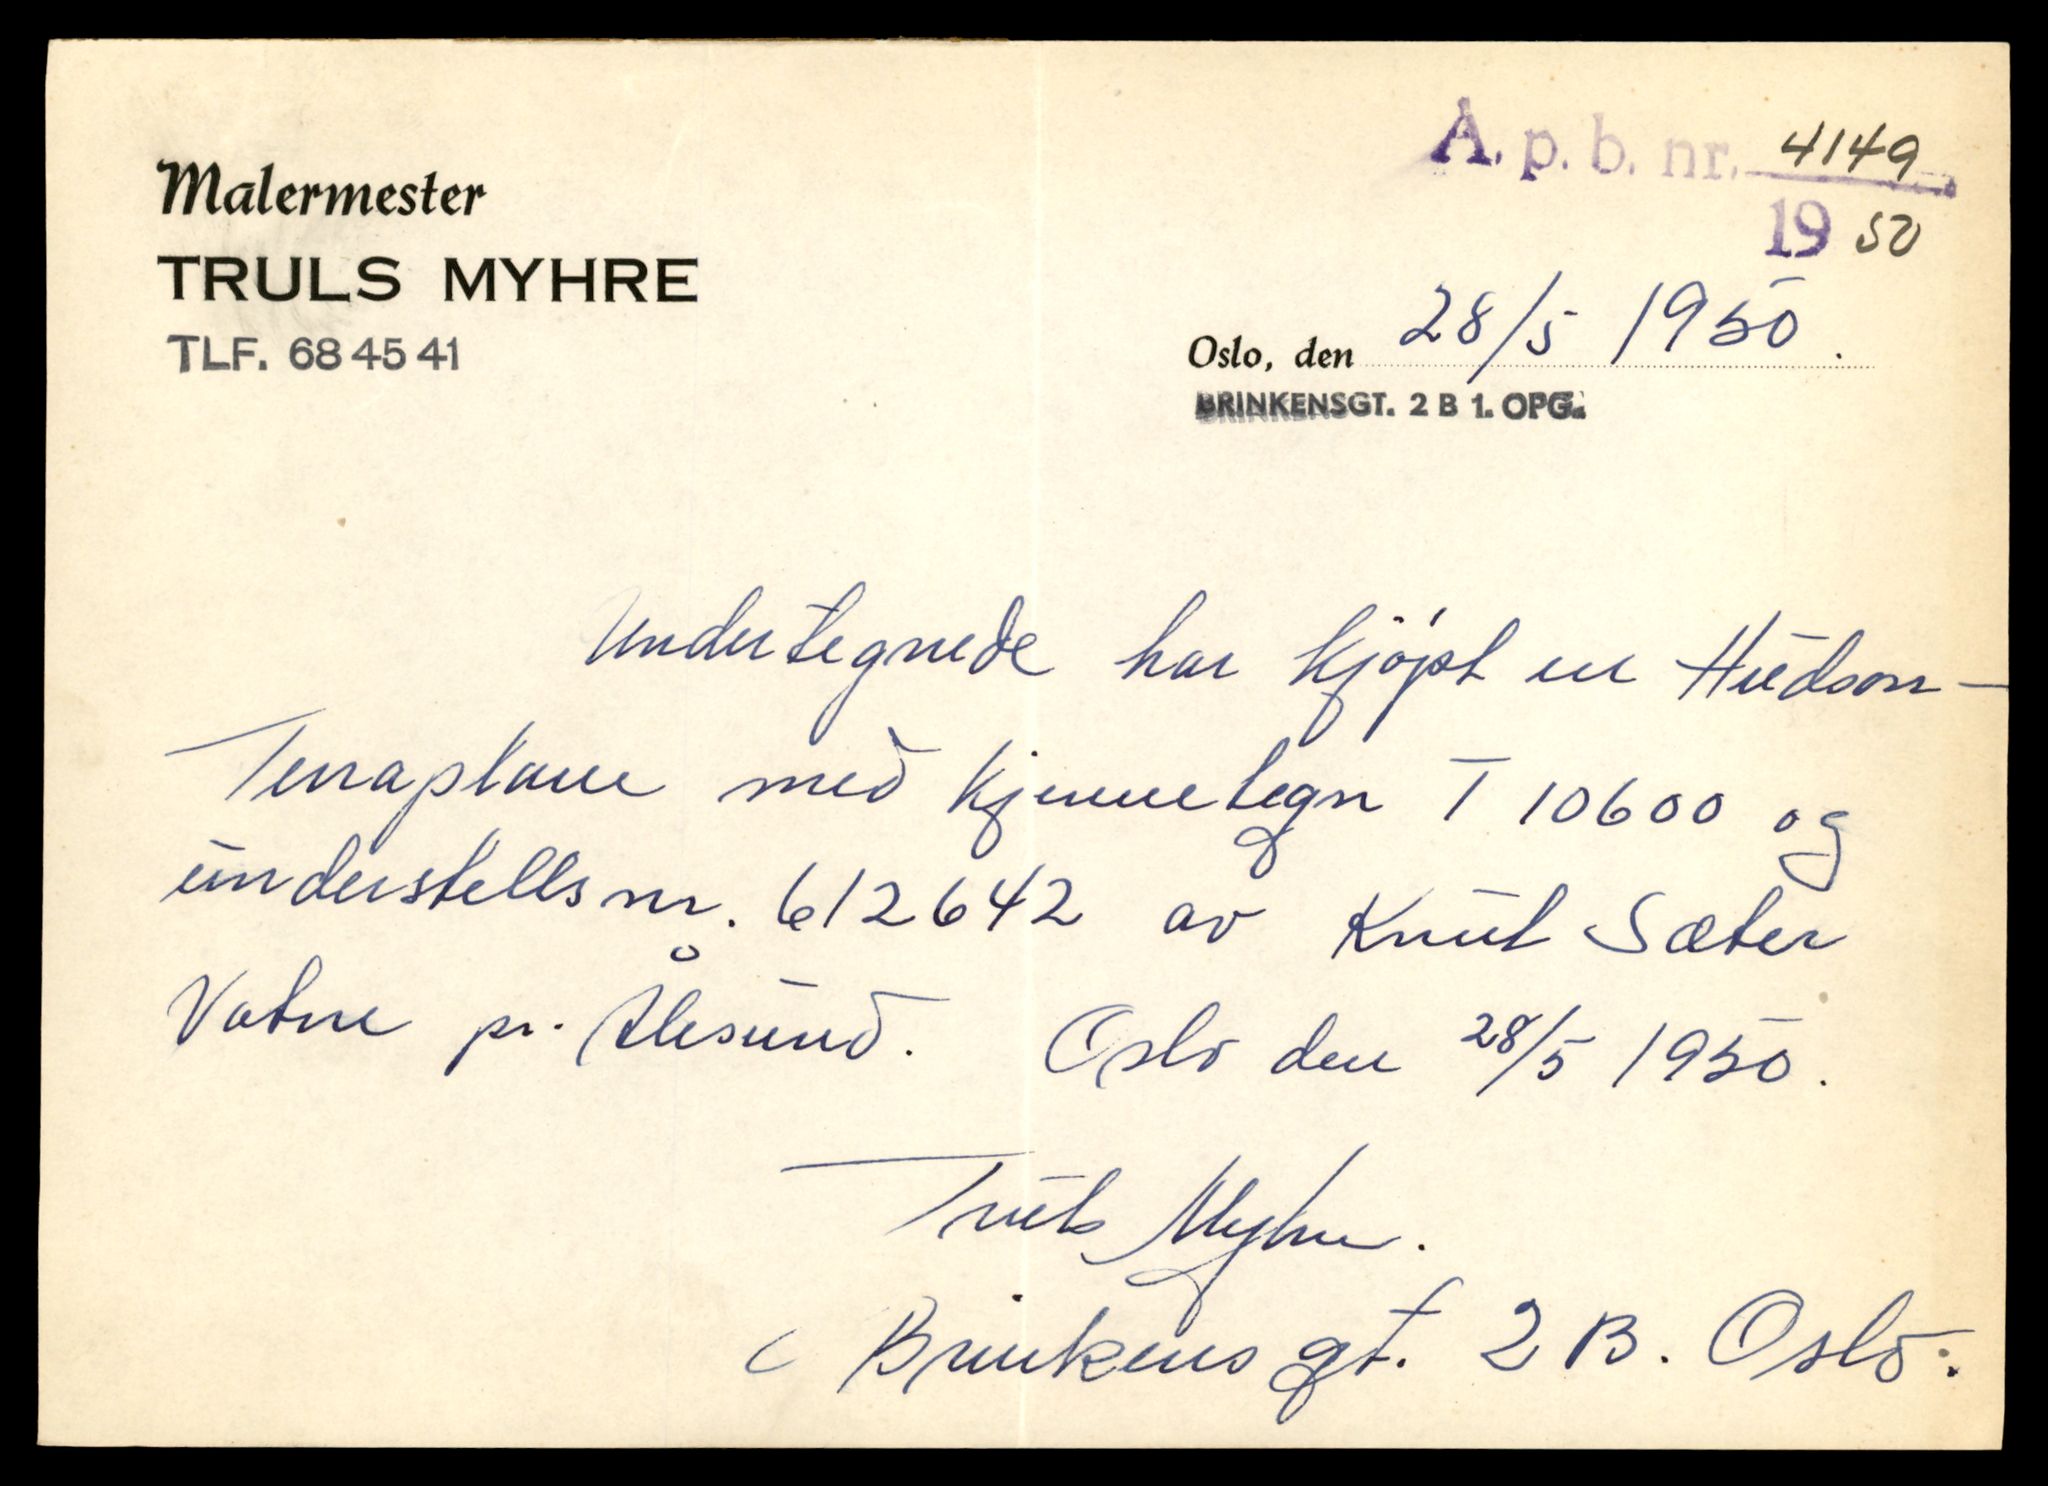 Malermester
TRULS MYHRE
TLF. 68 45 41
A. p. b. nr. 4149
19 50
Oslo, den 28/5 1950.
BRINKENSGT. 2 B 1. OPG.
Undertegnede har kjøpt en Hudson-
Terraplane med kjennetegn T 10600 og
understellsnr. 612642 av Knut Sæter
Vatne pr. Ålesund. Oslo den 28/5 1950.
Truls Myhre.
Brinkensgt. 2 B. Oslo.